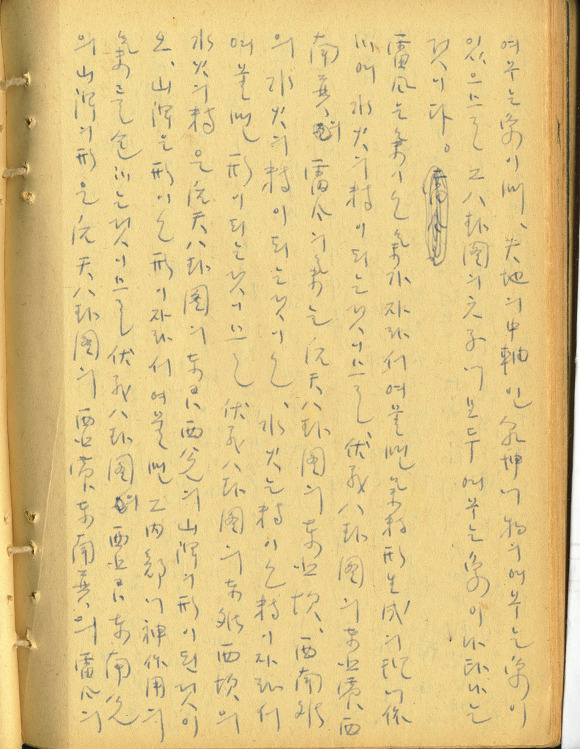 여무는 象이며、天地의 中軸인 乾坤에 物의 여무는 象이
있으므로 그 八卦圖의 文字에 모두 여무는 象이 나타나는
것이다。
雷風은 氣이오 氣가 자라서 여물면 氣精形 生成의 理에 依
하여 水火의 精이 되는 것이므로、伏羲八卦圖의 東北震、西
南巽의 雷風의 氣는 先天八卦圖의 東北坎、西南離
의 水火의 精이 되는 것이오、水火는 精이오 精이 자라서
여물면 形이 되는 것이므로 伏羲八卦圖의 東離西坎의
水火의 精은 先天八卦圖의 東艮西兌의 山澤의 形이 된 것이
오、山澤은 形이오 形이 자라서 여물면 그 內部에 神作用의
氣를 包하는 것이므로 伏羲八卦圖의 西北艮東南兌
의 山澤의 形은 先天八卦圖의 西北震東南巽의 雷風의